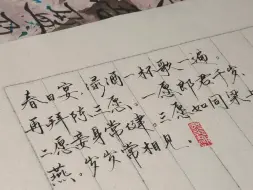 春日宴,绿酒一杯歌一遍,
再拜陈三愿。一愿郎君千岁,
二愿妾身常健,三愿如同梁
燕。岁岁常相见。